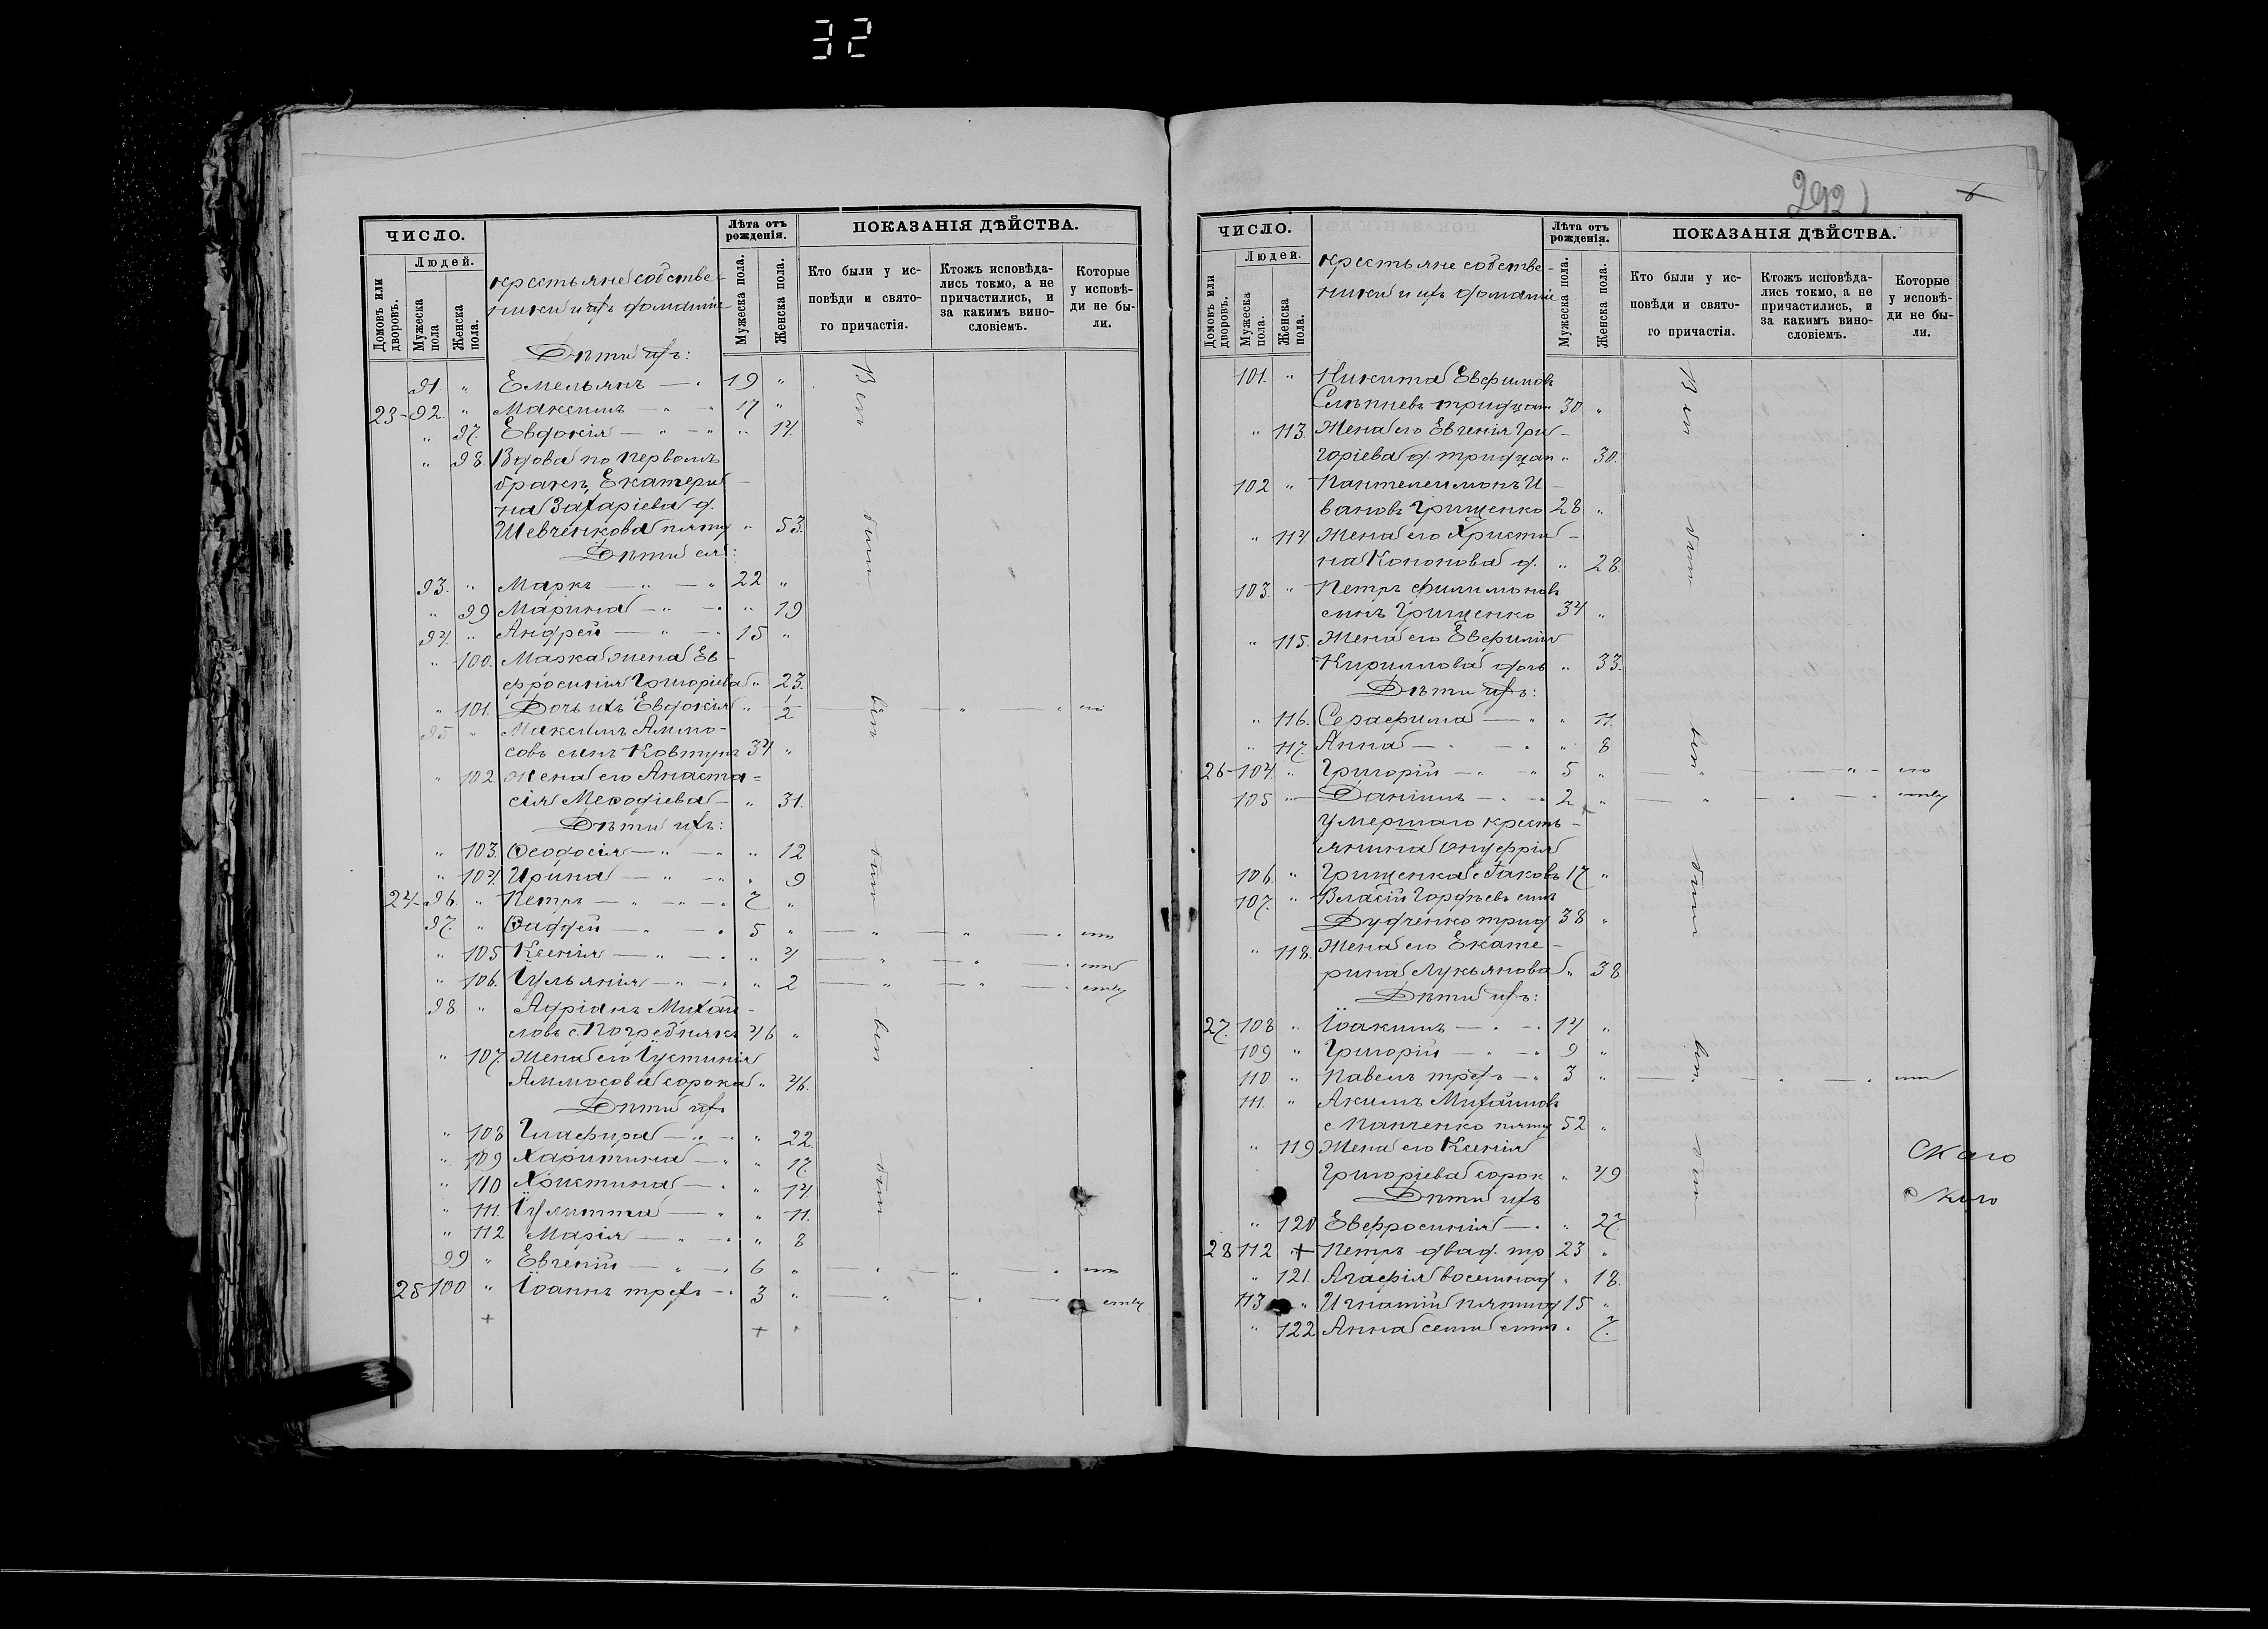 32
ЧИСЛО.
Людей.
Домовъ или дворовъ.
Мужеска пола
Женска пола.
крестьяне собстве-
нники и ихъ фамиліи
Лѣта отъ рожденія.
Мужеска пола.
Женска пола.
ПОКАЗАНІЯ ДѢЙСТВА.
Кто были у исповѣди и святого причастія.
Ктожъ исповѣдались токмо, а не причастились, и за какимъ винословіемъ.
Которые у исповѣди не были.
Дѣти ихъ:
91. " Емельянъ — " 19 "
23- 92. " Максимъ — " — " 17 "
" 97. Евдокія — " — " " 14.
" 98. Вдова по первомъ
бракѣ, Екатери-
на Захаріева д.
Шевченкова пяты " 53.
Дѣти ея:
93. " Маркъ — " — " 22 "
" 99 Марина — " — " " 19
94. " Андрей — " — " 15 "
" 100. Марка жена Ев-
фросинія Григоріева " 23.
" 101. Дочь ихъ Евдокія " 2
95 " Максимъ Аммо-
совъ сынъ Ковтунъ 34 "
" 102 Жена его Анаста=
сія Меѳодіева — " 31.
Дѣти ихъ:
" 103. Ѳеодосія — " — " " 12
" 104. Ирина — " — " " 9
24- 96. " Петръ — " — " 7 "
97. " Ѳаддей — " — " 5 "
" 105 Ксенія — " — " " 4
" 106. Іульянія — " — " " 2
98 " Адріанъ Михаи-
ловъ с. Погребнякъ 46 "
" 107. Жена его Іустинія
Аммосова сорока " 46.
Дѣти ихъ
" 108 Гликерія — " — " " 22.
" 109 Харитина — " " 17.
" 110 Христина — " " 14.
" 111. Іулитта — " " 11.
" 112 Марія — " — " " 8
99 " Евгеній — " — " 6 "
25 100 " Іоаннъ трехъ — " 3 "
Всѣ
были
всѣ
были
всѣ
были
292
6
ЧИСЛО.
Людей.
Домовъ или дворовъ.
Мужеска пола.
Женска пола.
крестьяне собстве-
нники и ихъ фамиліи
Лѣта отъ рожденія.
Мужеска пола.
Женска пола.
ПОКАЗАНІЯ ДѢЙСТВА.
Кто были у исповѣди и святого причастія.
Ктожъ исповѣдались токмо, а не причастились, и за какимъ винословіемъ.
Которые у исповѣди не были.
101. " Никита Евфимовъ
Слѣпневъ тридцат 30 "
" 113. Жена его Евгенія Гри-
горіева д. тридцат " 30.
102 " Пантелеимонъ И-
вановъ Грищенко 28 "
" 114 Жена его Христи-
на Кононова д. " 28.
103. " Петръ Филимоновъ
сынъ Грищенко 34 "
" 115. Жена его Евфимія
Кириллова дочь " 33.
Дѣти ихъ:
" 116. Серафима — " " 11.
" 117. Анна — " — " " 8
26- 104. " Григорій — " — " 5 "
105 " Даніилъ — " — " 2 "
Умершаго кресть-
янина Онуфрія
106. " Грищенка с. Іаковъ 17 "
107. " Власій Гордѣевъ сынъ
Дудченко трид 38 "
" 118. Жена его Екате-
рина Лукьянова " 38
Дѣти ихъ:
27. 108 " Іоакимъ — " — " 14 "
109 " Григорій — " — " 9 "
110 " Павелъ трехъ — " 3 "
111. " Акимъ Михаиловъ
с. Панченко пяты 52 "
" 119 Жена его Ксенія
Григоріева сорок " 49
Дѣти ихъ
" 120 Евфросинія — " " 27.
28 112 + Петръ двад. тр 23 "
" 121. Агафія восемнад " 18.
113 " Игнатій пятнад 15 "
" 122 Анна семи " 7.
Всѣ
были
всѣ
были
всѣ